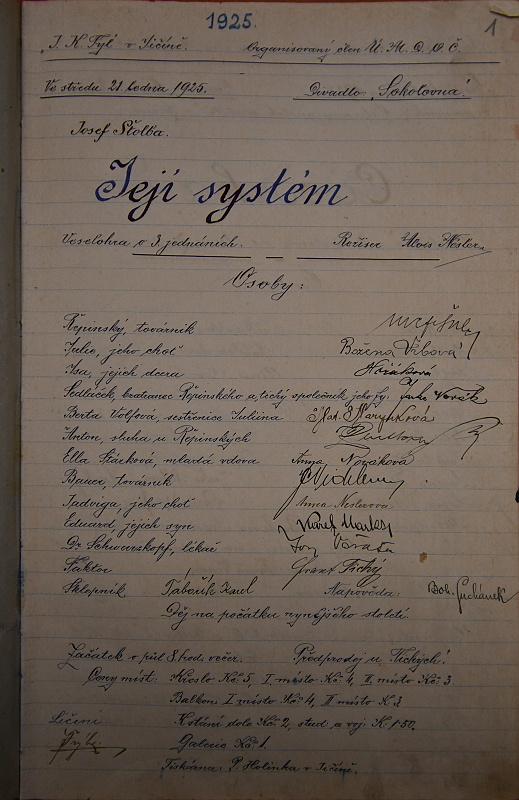 1925.
1
"J. K. Tyl" v Jičíně. Organisovaný člen Ú. M. D. O. Č.
Ve středu 21. ledna 1925. Divadlo "Sokolovna".
Josef Štolba.
Její systém
Veselohra o 3. jednáních. — Režiser Alois Nesler
Osoby:
Řepinský, továrník
Julie, jeho choť Božena Vrbová
Isa, jejich dcera Nováková
Sedláček, bratranec Řepinského a tichý společník jeho fy. Horák
Berta Volfová, sestřenice Juliina
Anton, sluha u Řepinských
Ella Stárková, mladá vdova Anna Nováková
Bauer, továrník
Jadviga, jeho choť Anna Neslerova
Eduard, jejich syn Karel
Dr. Schwarzkopf, lékař
Faktor Franz Tichý
Sklepník Tabořík Karel Nápověda: Boh. Suchánek
Děj na počátku nynějšího století.
Začátek o půl 8. hod. večer. Předprodej u Tichých.
Ceny míst: Křeslo Kč 5, I. místo Kč 4, II. místo Kč 3
Balkon I místo Kč 4, II místo K 3
Líčení K stání dole Kč 2, stud. a voj. K 1·50.
Galerie Kč 1.
Tiskárna: P. Holinka v Jičíně.